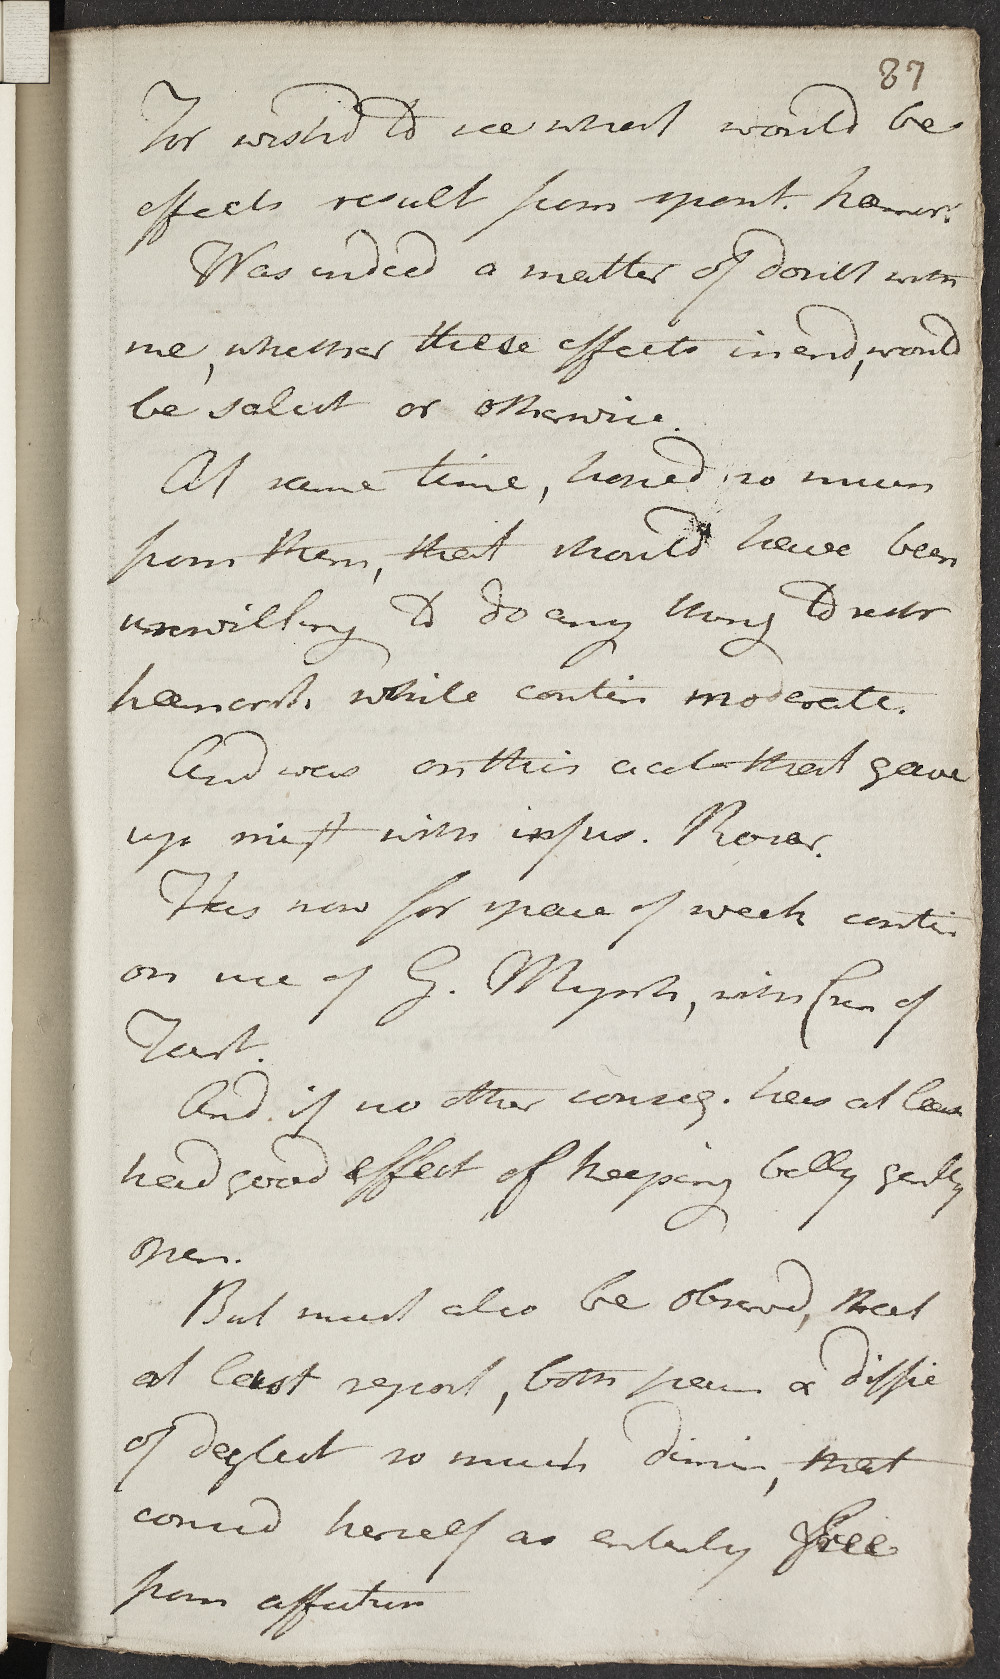 87
For wish'd to see what would be
effects result from spont. hæmor.
Was indeed a matter of doubt with
me, whether these effects in end, would
be salut or otherwise.
At same time, hoped so much
from them, that should have been
unwilling to do any thing to restr
hæmorrh. while contin moderate.
And was on this acct that gave
up mixt with infus. Rosar.
Has now for space of week contin
on use of G. Myrrh, with Crem of
Tart.
And if no other conseq. has at least
had good effect of keeping belly gently
open.
But must also be observd, that
at last report, both pain & diffic
of deglut so much dimin, that
consid herself as entirely free
from affection